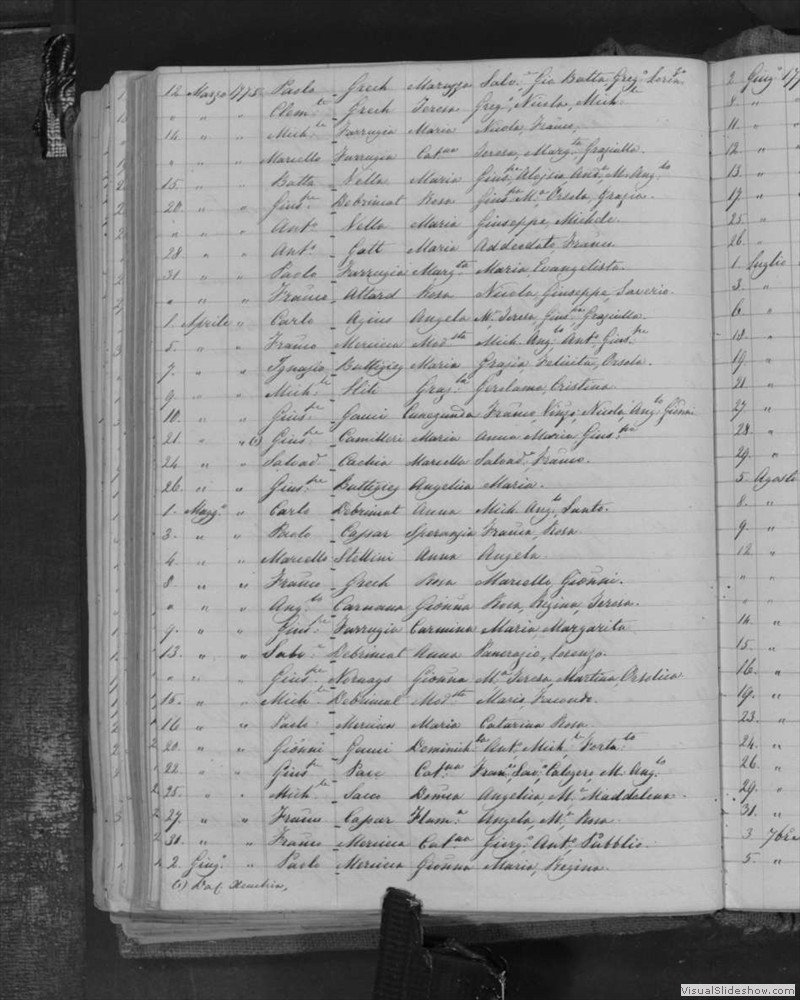 12. Marzo 1775 Paolo Grech Maruzza Salv.re Gio Batta Greg.o Lorin.
" " " Clem.te Grech Teresa Greg.o Nicola, Mich.le
14. " " Mich.le Farrugia Maria Nicola, Franco,
" " " Marcello Farrugia Cat.na Teresa, Marg.ta Graziulla.
15. " " Batta Vella Maria Gius.pe Aloisia Ant.a M. Ang.lo
20. " " Gius.pe Debrincat Rosa Gius.pa M.a Orsola, Grazia.
" " " Ant.o Vella Maria Giuseppe, Michele.
28 " " Ant.o Galt Maria Addeodato, Franco
31 " " Paolo Farrugia Marg.ta Maria Evangelista.
" " " Franco Attard Rosa Nicola, Giuseppe, Saverio.
1. Aprile " Carlo Agius Angela M.a Teresa, Gius.pa, Graziulla.
5. " " Franco Mercieca Mod.sta Mich. Ang.lo Ant.o Gius.pe
7. " " Ignazio Buttigieg Maria Grazia, Felicita, Orsola.
9. " " Mich.le Hili Graz.la Gerolama, Cristina
10. " " Gius.pe Gauci Cunegunda Franco, Vinzo, Nicola Ang.lo Giõnna
21. " " (1) Gius.pe Camilleri Maria Anna Maria Gius.pa
24 " " Salvad.e Cachia Marcella Salvad.e, Franco.
26. " " Gius.pe Buttigieg Angelica Maria.
1. Magg.o " Carlo Debrincat Anna Mich. Ang.lo, Santo.
3. " " Paolo Capsar Speranzia Franca, Rosa.
4. " " Marcello Stellini Anna Angela.
8. " " Franco Grech Rosa Marcello, Giõnni.
" " " Ang.lo Carnana Giõnna Rosa, Regina, Teresa.
9. " " Gius.pe Farrugia Carmina Maria Margarita
13. " " Salv.re Debrincat Anna Pancrazio, Lorenzo.
" " " Gius.pe Giõnna M.a Teresa, Martina, Orsolica
15. " " Mich.le Debrincat Mod.sta Maria,
16 " " Paolo Mercieca Maria Catarina Rosa
20. " " Giõnni Gauci Dominich.la Ant.o Mich.le Fort.to
22. " " Gius.e Pace Cat.na Fran.co, Sav.o, Calogero M. Ang.lo
25. " " Mich.le Saco Domca Angelica, M.a Maddalena
27. " " Franco Capsar Flam.a Angela, M.a Rosa
30. " " Franco Mercieca Cat.na Giorg.o Ant.o Pubblio.
2. Giug.o " Paolo Mercieca Giõnna Maria, Regina.
(1) Da C. Xeuchia,
2 Giug.o 177
8 "
11. "
12. "
13. "
17. "
25. "
26. "
1. Luglio
3. "
6. "
13. "
19. "
21 "
27. "
28. "
29. "
5. Agosto
8. "
9. "
12 "
" "
14. "
15. "
16. "
19. "
23. "
24. "
26. "
29. "
31. "
3. 7bre
5. "
VisualSlideshow.com